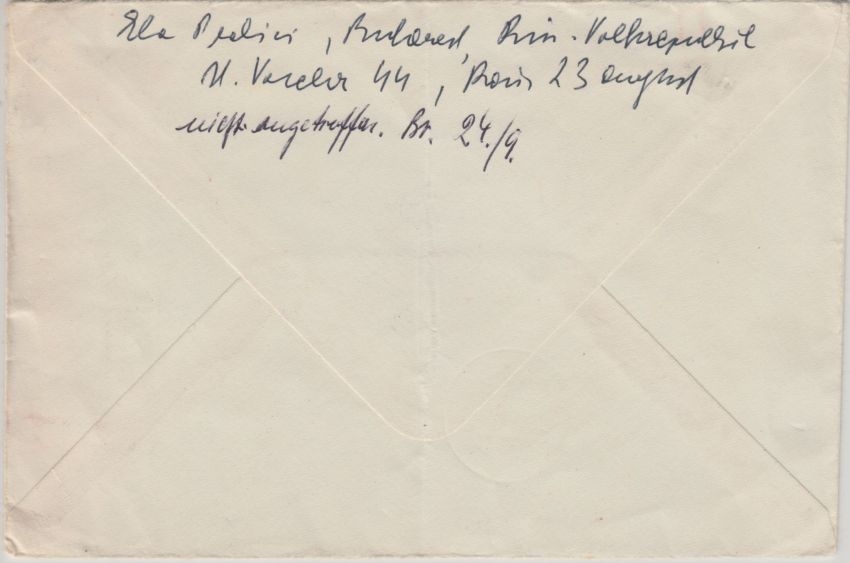 Ela , Bukarest, Rum. Volksrepublik
44, Raion 23 August
nicht angetroffen. Br. 24./9.